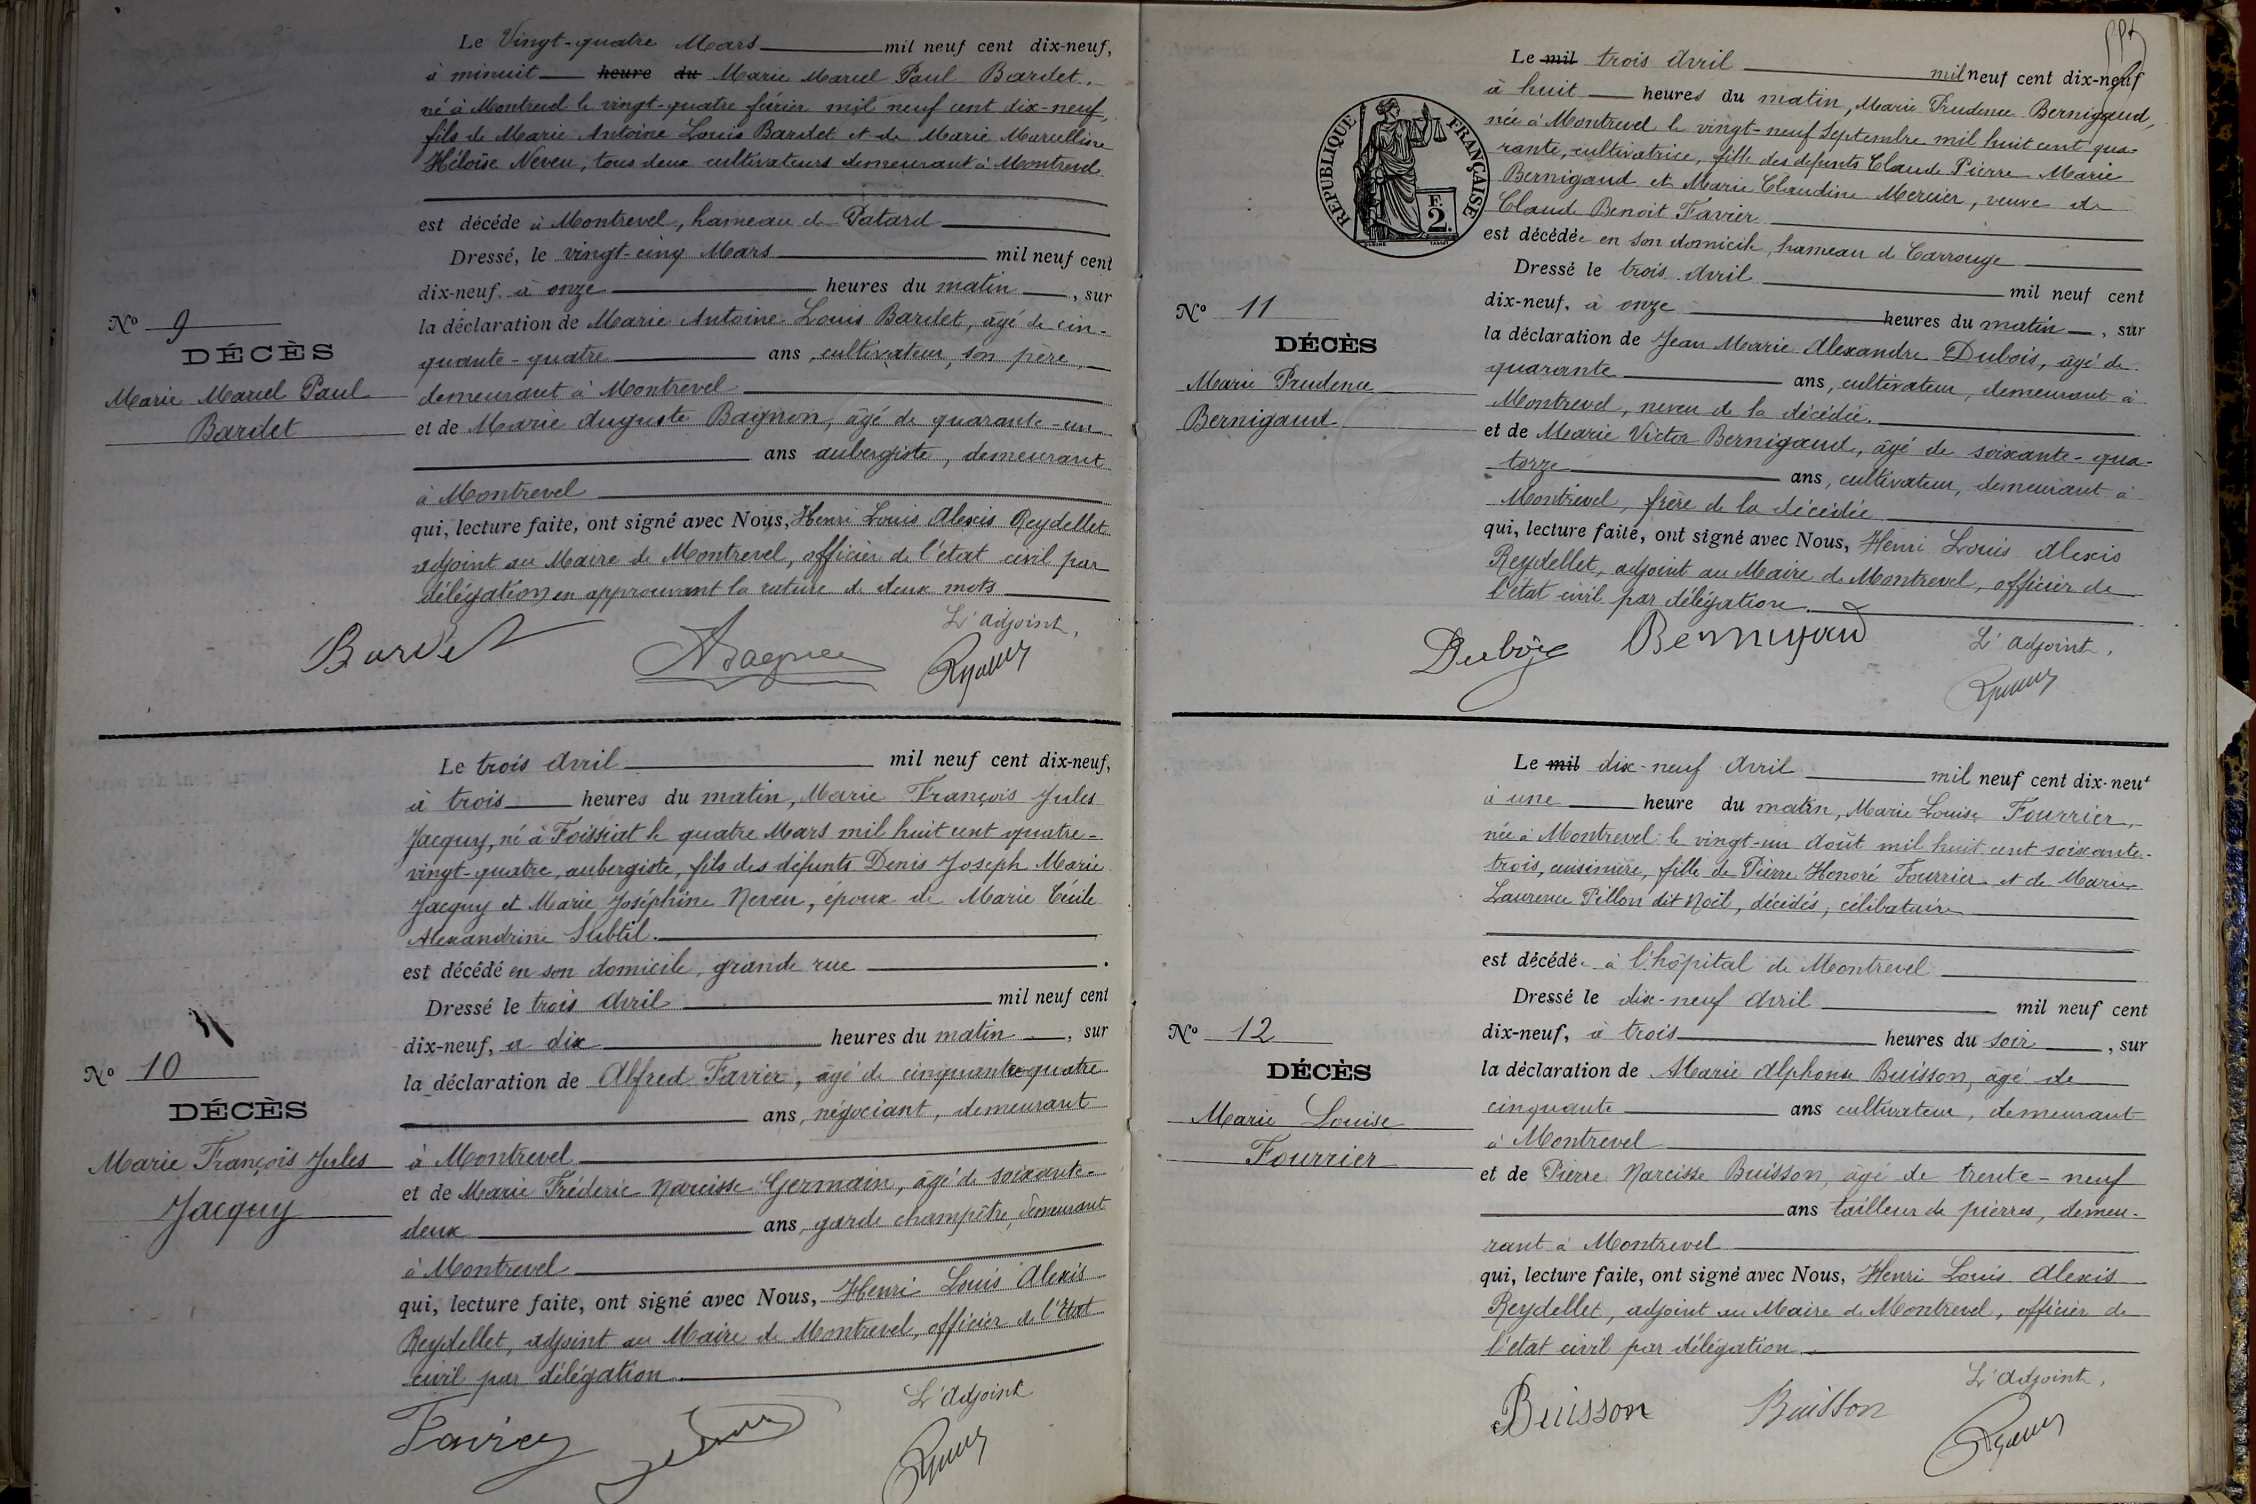 Le Vingt-quatre Mars mil neuf cent dix-neuf,
à minuit heure du Marie Marcel Paul Bardet,
né à Montrevel le vingt-quatre février mil neuf cent dix-neuf,
fils de Marie Antoine Louis Bardet et de Marie Marcelline
Héloïse Neveu, tous deux cultivateurs demeurant à Montrevel
est décédé à Montrevel, hameau de Patard
Dressé, le vingt-cinq Mars mil neuf cent
dix-neuf à onze heures du matin, sur
la déclaration de Marie Antoine Louis Bardet, âgé de cin-
quante-quatre ans, cultivateur, son père,
demeurant à Montrevel
et de Marie Auguste Bagnon, âgé de quarante-un
ans aubergiste, demeurant
à Montrevel
qui, lecture faite, ont signé avec Nous, Henri Louis Alexis Reydellet
adjoint au Maire de Montrevel, officier de l'état civil par
délégation en approuvant la rature de deux mots
L'adjoint,
Bardet
N° 9
DÉCÈS
Marie Marcel Paul
Bardet
Le trois Avril mil neuf cent dix-neuf,
à trois heures du matin, Marie François Jules
Jacquy, né à Foissiat le quatre Mars mil huit cent quatre-
vingt-quatre, aubergiste, fils des défunts Denis Joseph Marie
Jacquy et Marie Joséphine Neveu, époux de Marie Cécile
Alexandrine Subtil.
est décédé en son domicile, grande rue
Dressé le trois Avril mil neuf cent
dix-neuf, à dix heures du matin, sur
la déclaration de Alfred Favier, âgé de cinquante-quatre
ans, négociant, demeurant
à Montrevel
et de Marie Fréderic Narcisse Germain, âgé de soixante-
deux ans, garde champêtre, demeurant
à Montrevel
qui, lecture faite, ont signé avec Nous, Henri Louis Alexis
Reydellet, adjoint au Maire de Montrevel, officier de l'Etat
civil par délégation
L'Adjoint
Favier
N° 10
DÉCÈS
Marie François Jules
Jacquy
RÉPUBLIQUE FRANÇAISE
F. 2.
Le mil trois Avril mil neuf cent dix-neuf
à huit heures du matin, Marie Prudence Bernigaud,
née à Montrevel le vingt-neuf Septembre mil huit cent qua-
rante, cultivatrice, fille des défunts Claude Pierre Marie
Bernigaud et Marie Claudine Mercier, veuve de
Claude Benoit Favier
est décédée en son domicile, hameau de Carrouge
Dressé le trois Avril mil neuf cent
dix-neuf, à onze heures du matin, sur
la déclaration de Jean Marie Alexandre Dubois, âgé de
quarante ans, cultivateur, demeurant à
Montrevel, neveu de la décédée,
et de Marie Victor Bernigaud, âgé de soixante-qua-
torze ans, cultivateur, demeurant à
Montrevel, frère de la décédée
qui, lecture faite, ont signé avec Nous, Henri Louis Alexis
Reydellet, adjoint au Maire de Montrevel, officier de
l'état civil par délégation.
L'adjoint,
Dubois Bernigaud
N° 11
DÉCÈS
Marie Prudence
Bernigaud
Le mil dix-neuf Avril mil neuf cent dix-neuf
à une heure du matin, Marie Louise Fourrier,
née à Montrevel le vingt-un Août mil huit cent soixante-
trois, cuisinière, fille de Pierre Honoré Fourrier et de Marie
Laurence Pillon dit Noël, décédés, célibataire
est décédée à l'hôpital de Montrevel
Dressé le dix-neuf Avril mil neuf cent
dix-neuf, à trois heures du soir, sur
la déclaration de Marie Alphonse Buisson, âgé de
cinquante ans cultivateur, demeurant
à Montrevel
et de Pierre Narcisse Buisson, âgé de trente-neuf
ans tailleur de pierres, demeu-
rant à Montrevel
qui, lecture faite, ont signé avec Nous, Henri Louis Alexis
Reydellet, adjoint au Maire de Montrevel, officier de
l'état civil par délégation
L'Adjoint,
Buisson Buisson
N° 12
DÉCÈS
Marie Louise
Fourrier